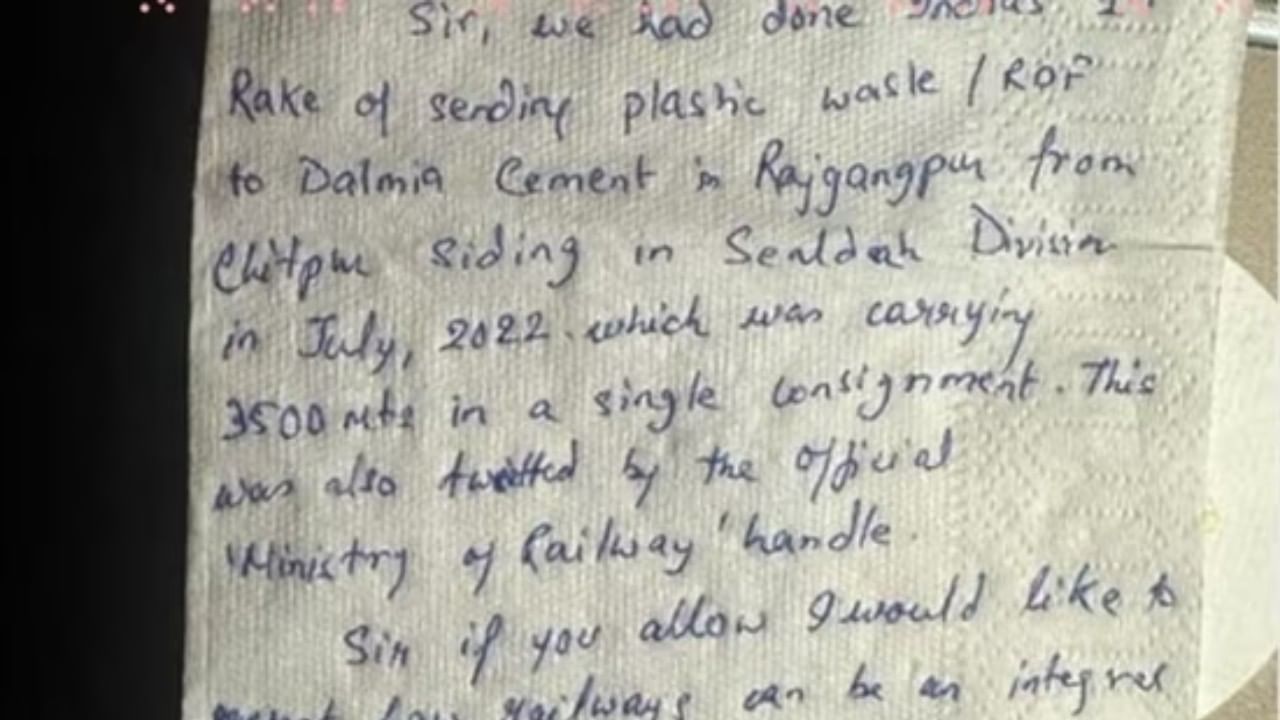 Sir, we had done India's 1st
Rake of sending plastic waste / RDF
to Dalmia Cement in Rajgangpur from
Chitpur siding in Sealdah Division
in July, 2022 which was carrying
3500 Mts in a single consignment. This
was also twitted by the official
'Ministry of Railway' handle.
Sir if you allow I would like to
how railways can be an integral